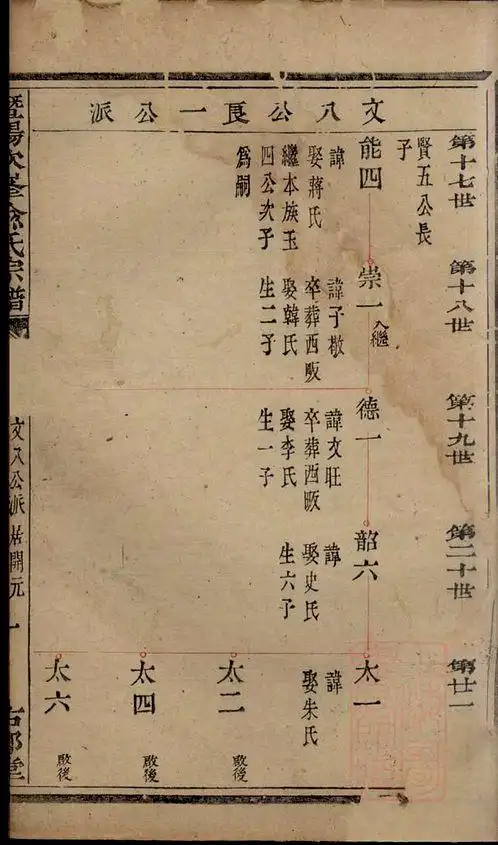 文八公良一公派
第十七世
第十八世
第十九世
第二十世
第廿一
賢五公長
子
能四
諱
娶蔣氏
繼本族玉
四公次子
為嗣
崇一
入繼
諱子敬
卒葬西畈
娶韓氏
生二子
德一
諱文旺
卒葬西畈
娶李氏
生一子
韶六
諱
娶史氏
生六子
太一
諱
娶朱氏
太二
後
太四
後
太六
後
氏宗譜
文八公派居開元
一
堂